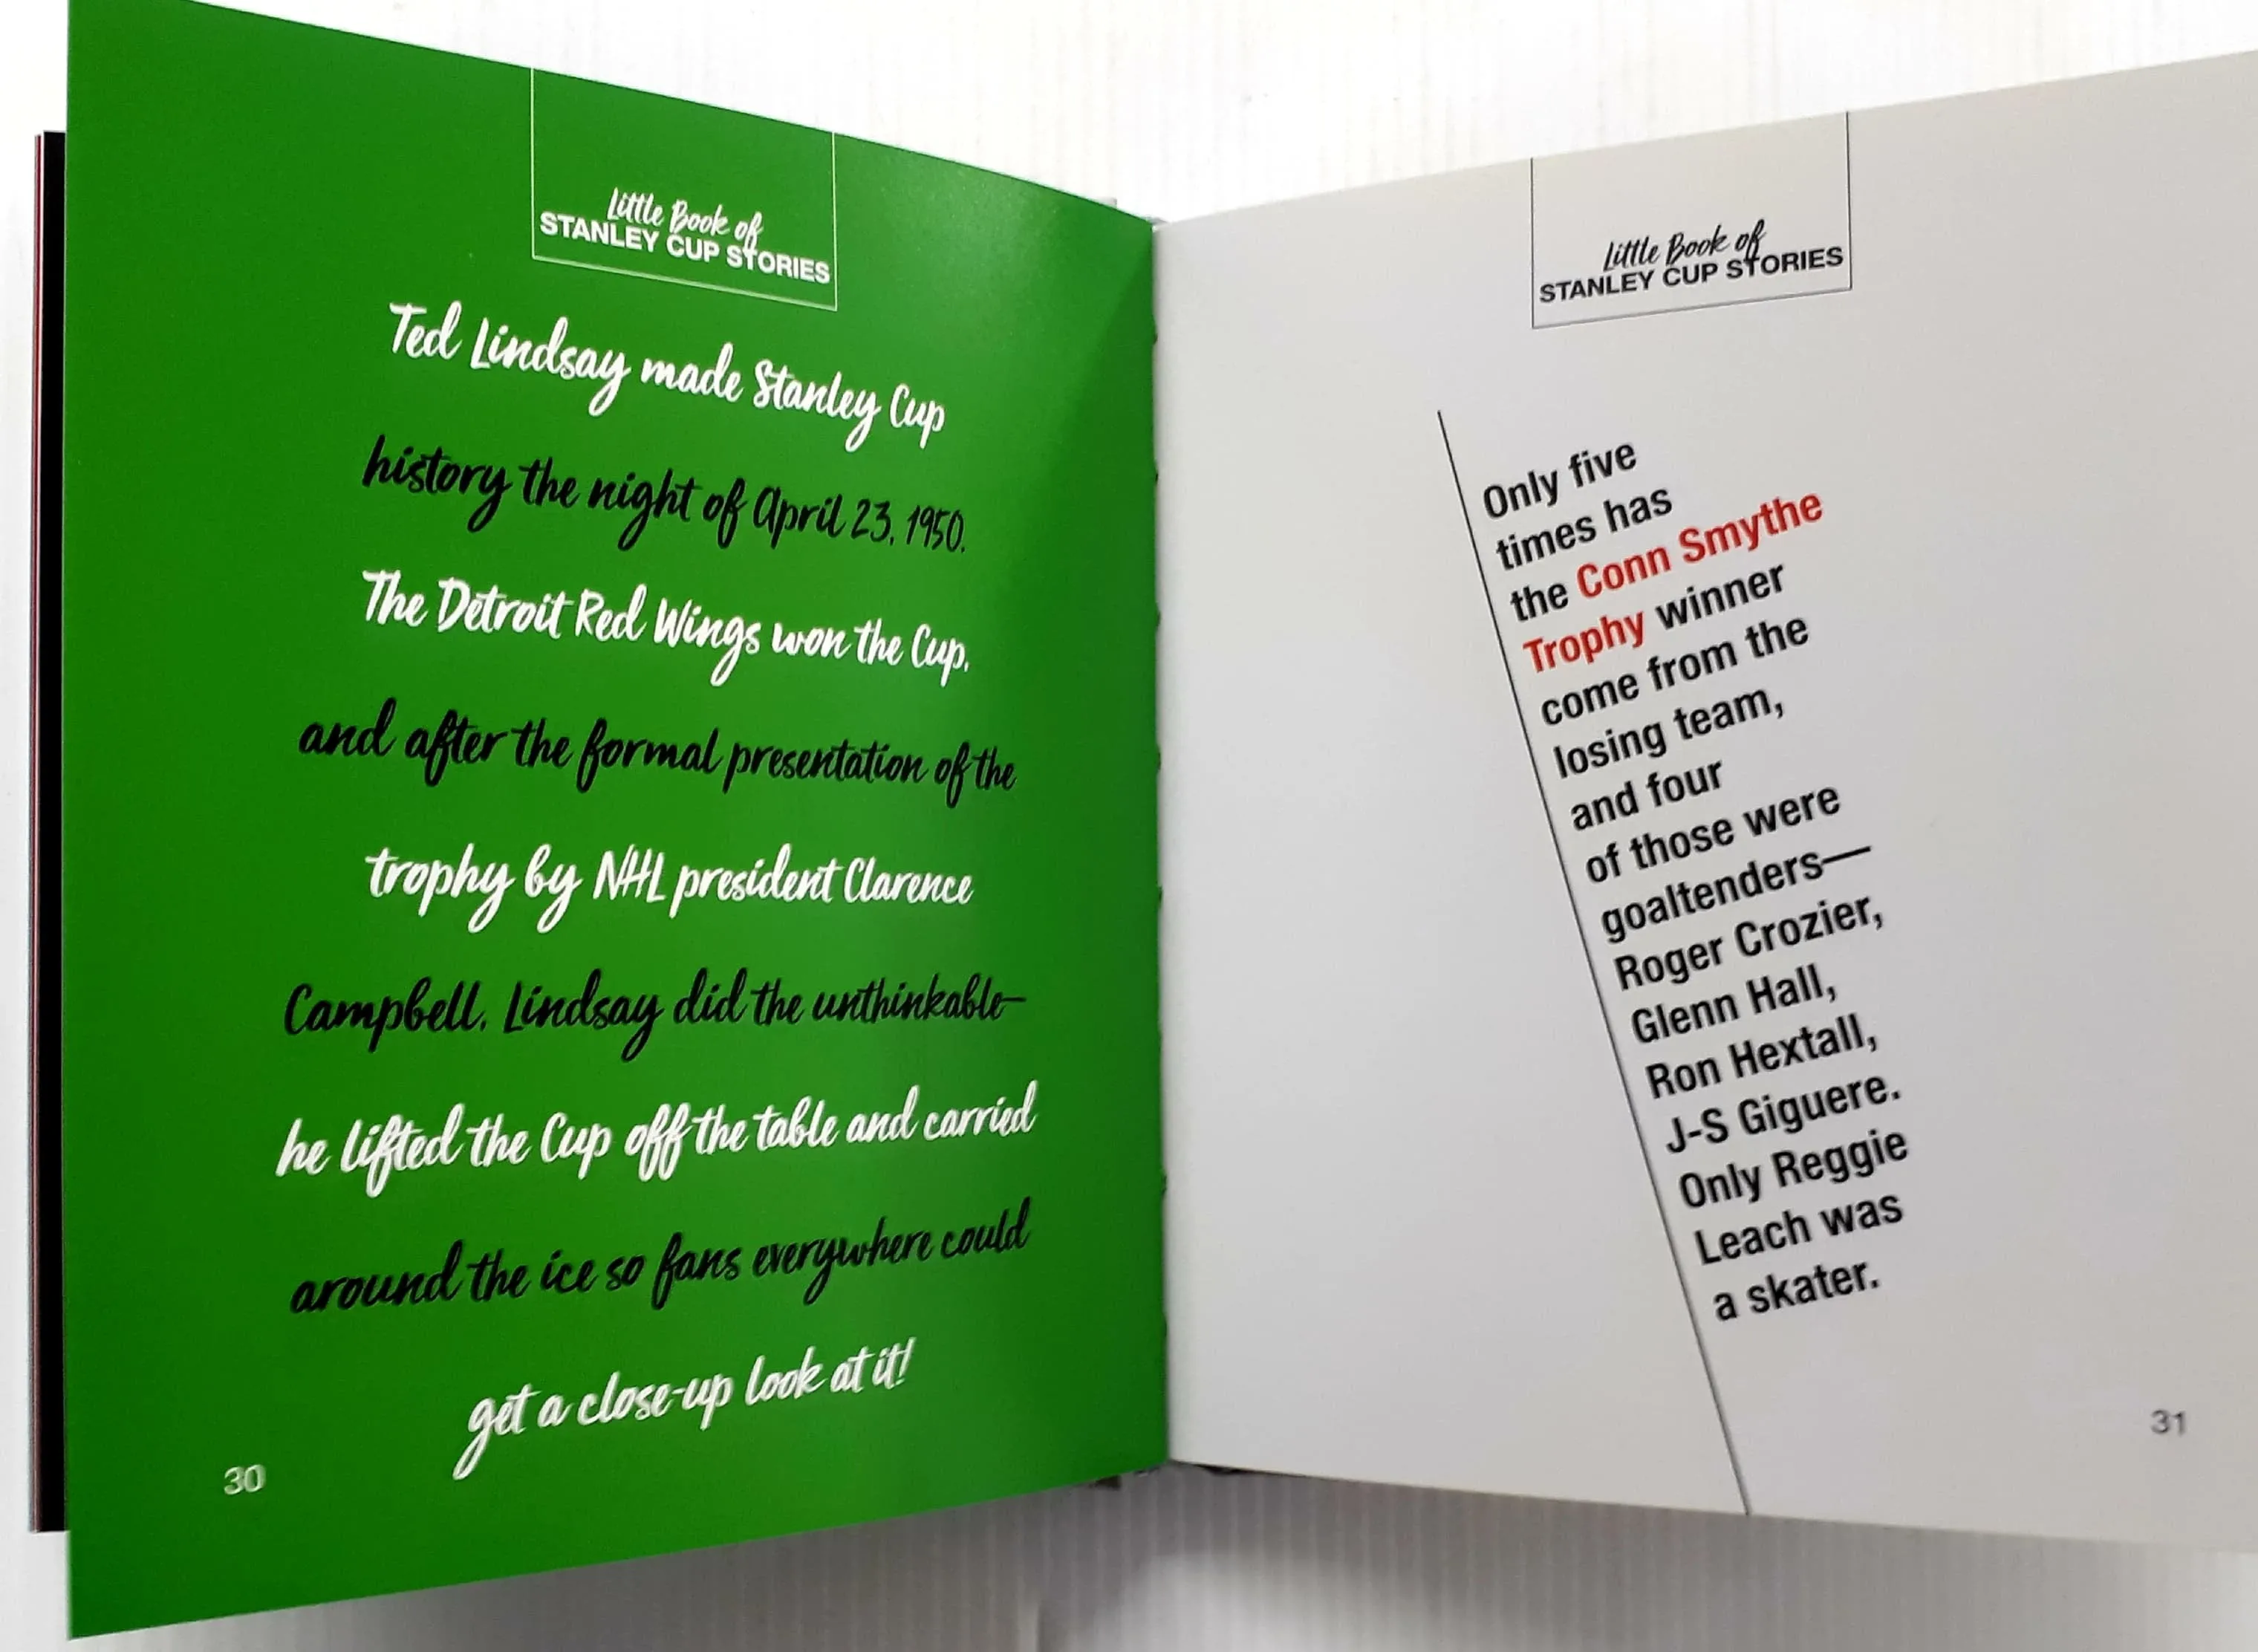 Little Book of
STANLEY CUP STORIES
Ted Lindsay made Stanley Cup
history the night of April 23, 1950.
The Detroit Red Wings won the Cup,
and after the formal presentation of the
trophy by NHL president Clarence
Campbell, Lindsay did the unthinkable—
he lifted the Cup off the table and carried
around the ice so fans everywhere could
get a close-up look at it!
30
Little Book of
STANLEY CUP STORIES
Only five
times has
the Conn Smythe
Trophy winner
come from the
losing team,
and four
of those were
goaltenders—
Roger Crozier,
Glenn Hall,
Ron Hextall,
J-S Giguere.
Only Reggie
Leach was
a skater.
31